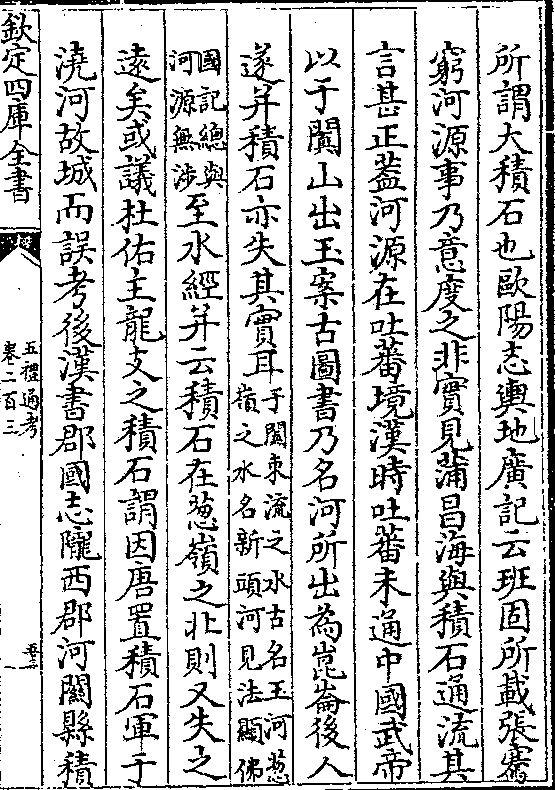 所謂大積石也歐陽忞輿地廣記云班固所載張騫
窮河源事乃意度之非實見蒲昌海與積石通流其
言甚正蓋河源在吐蕃境漢時吐蕃未通中國武帝
以于闐山出玉案古圖書乃名河所出為崑崙後人
遂并積石亦失其實耳于闐東流之水古名玉河葱
嶺之水名新頭河見法顯佛
國記總與
河源無涉至水經并云積石在葱嶺之北則又失之
遠矣或議杜佑主龍支之積石謂因唐置積石軍于
澆河故城而誤考後漢書郡國志隴西郡河關縣積
欽定四庫全書
五禮通考
卷二百三